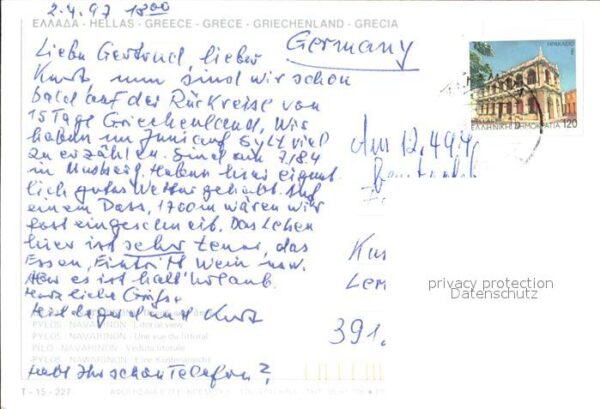 2.4.97 18⁰⁰
ΕΛΛΑΔΑ - HELLAS - GREECE - GRECE - GRIECHENLAND - GRECIA
Germany
Liebe Gertrud, lieber
Kurt nun sind wir schon
bald auf der Rückreise von
15 Tage Griechenland, Wir
haben im Juni auf Sylt viel
zu erzählen. Sind am
in Haben hier eigent
lich gutes Wetter gehabt. Auf
einem Pass, 1700 m wären wir
fast eingeschneit. Das Leben
hier ist sehr teuer, das
Essen, Eintritt Wein usw.
Aber es ist halt Urlaub.
Herzliche Grüße
Hildegard und Kurt
PYLOS - NAVARINON - Litoral view
PYLOS - NAVARINON - Une vue du littoral
PILO - NAVARINON - Veduta litorale
PYLOS - NAVARINON - Eine Küstenansicht
Habt Ihr schon Telefon?
T - 15 - 227
ΗΡΑΚΛΕΙΟ
ΕΛΛΗΝΙΚΗ ΔΗΜΟΚΡΑΤΙΑ 120
Am 12.4.
Kur
391.
privacy protection
Datenschutz